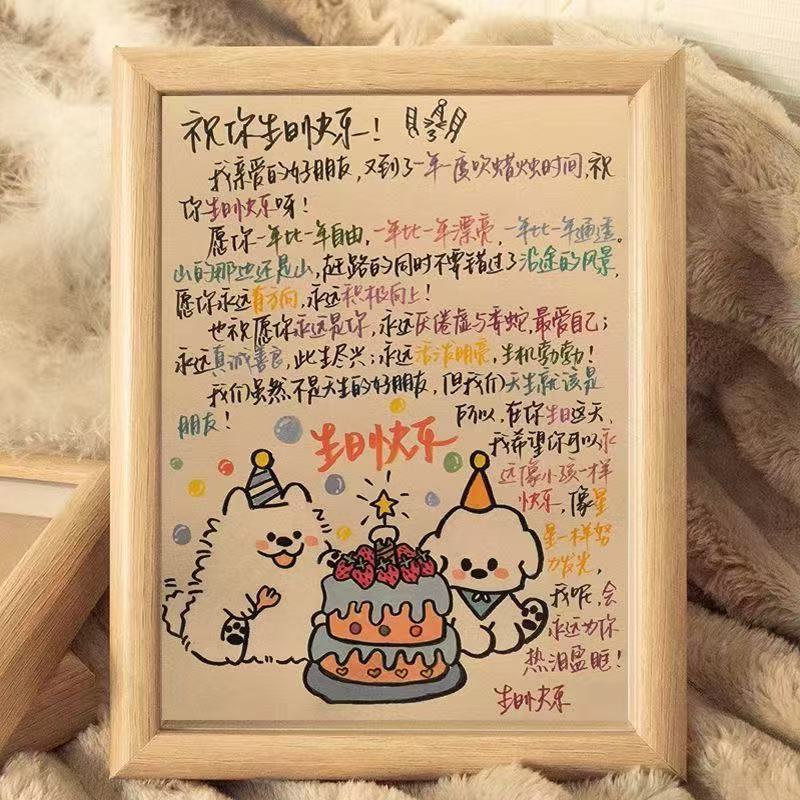 祝你生日快乐!
我亲爱的好朋友,又到了一年一度吹蜡烛时间,祝
你生日快乐呀!
愿你一年比一年自由,一年比一年漂亮,一年比一年通透。
山的那些还是山,赶路的同时不要错过了沿途的风景,
愿你永远有方向,永远积极向上!
也祝愿你永远是你,永远厌倦虚与委蛇,最爱自己;
永远真诚善良,此生尽兴;永远活泼明亮,生机勃勃!
我们虽然不是天生的好朋友,但我们天生就该是
朋友!
所以,在你生日这天,
我希望你可以永
远像小孩一样
快乐,像星
星一样努
力发光,
我呢,会
永远为你
热泪盈眶!
生日快乐
生日快乐